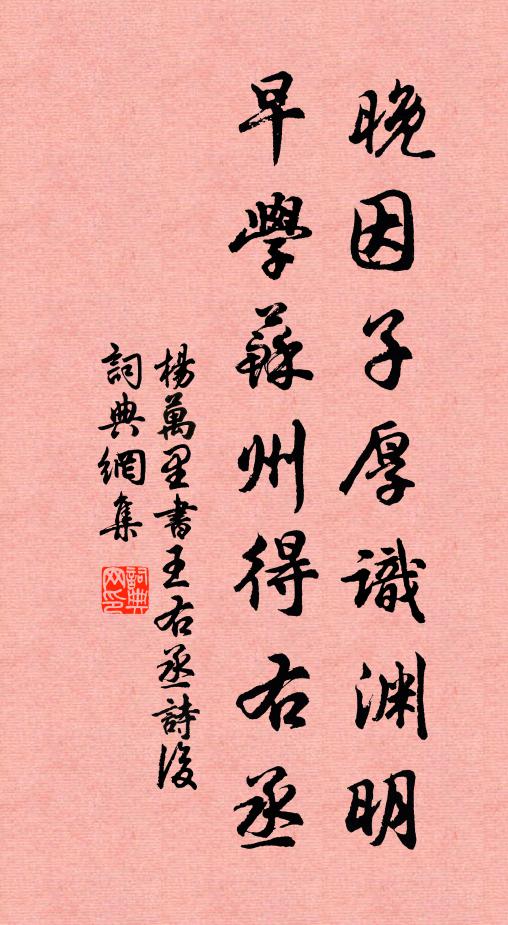 晚因子厚識渊明
早學蘇州得右丞
楊萬里書王右丞詩後
詞典網集
詞典网印